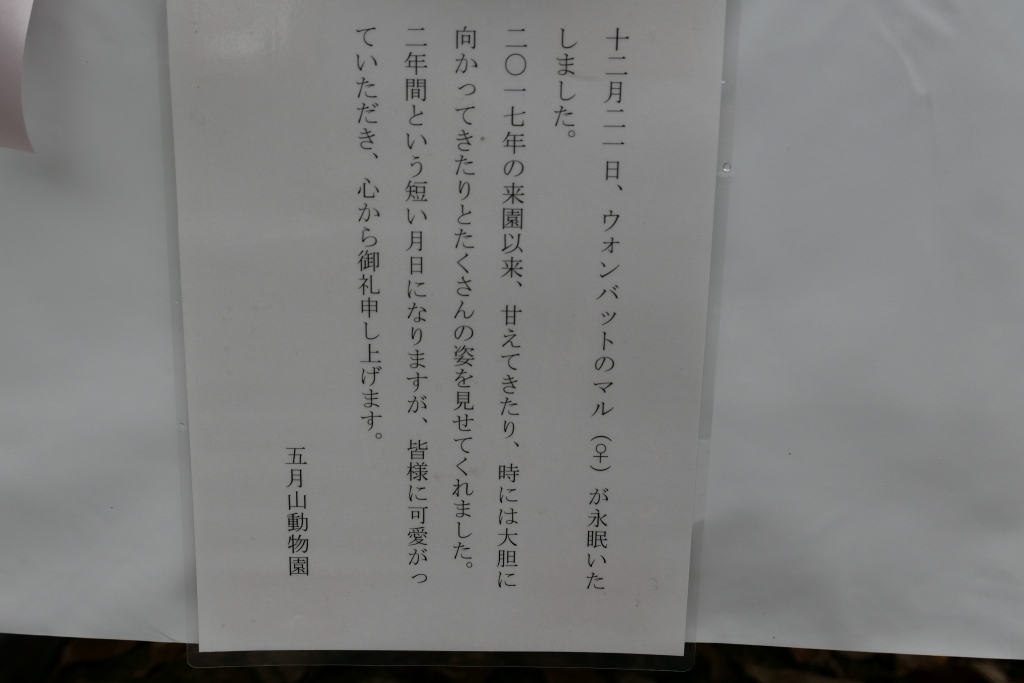 十二月二一日、ウォンバットのマル（♀）が永眠いた
しました。
二〇一七年の来園以来、甘えてきたり、時には大胆に
向かってきたりとたくさんの姿を見せてくれました。
二年間という短い月日になりますが、皆様に可愛がっ
ていただき、心から御礼申し上げます。
五月山動物園